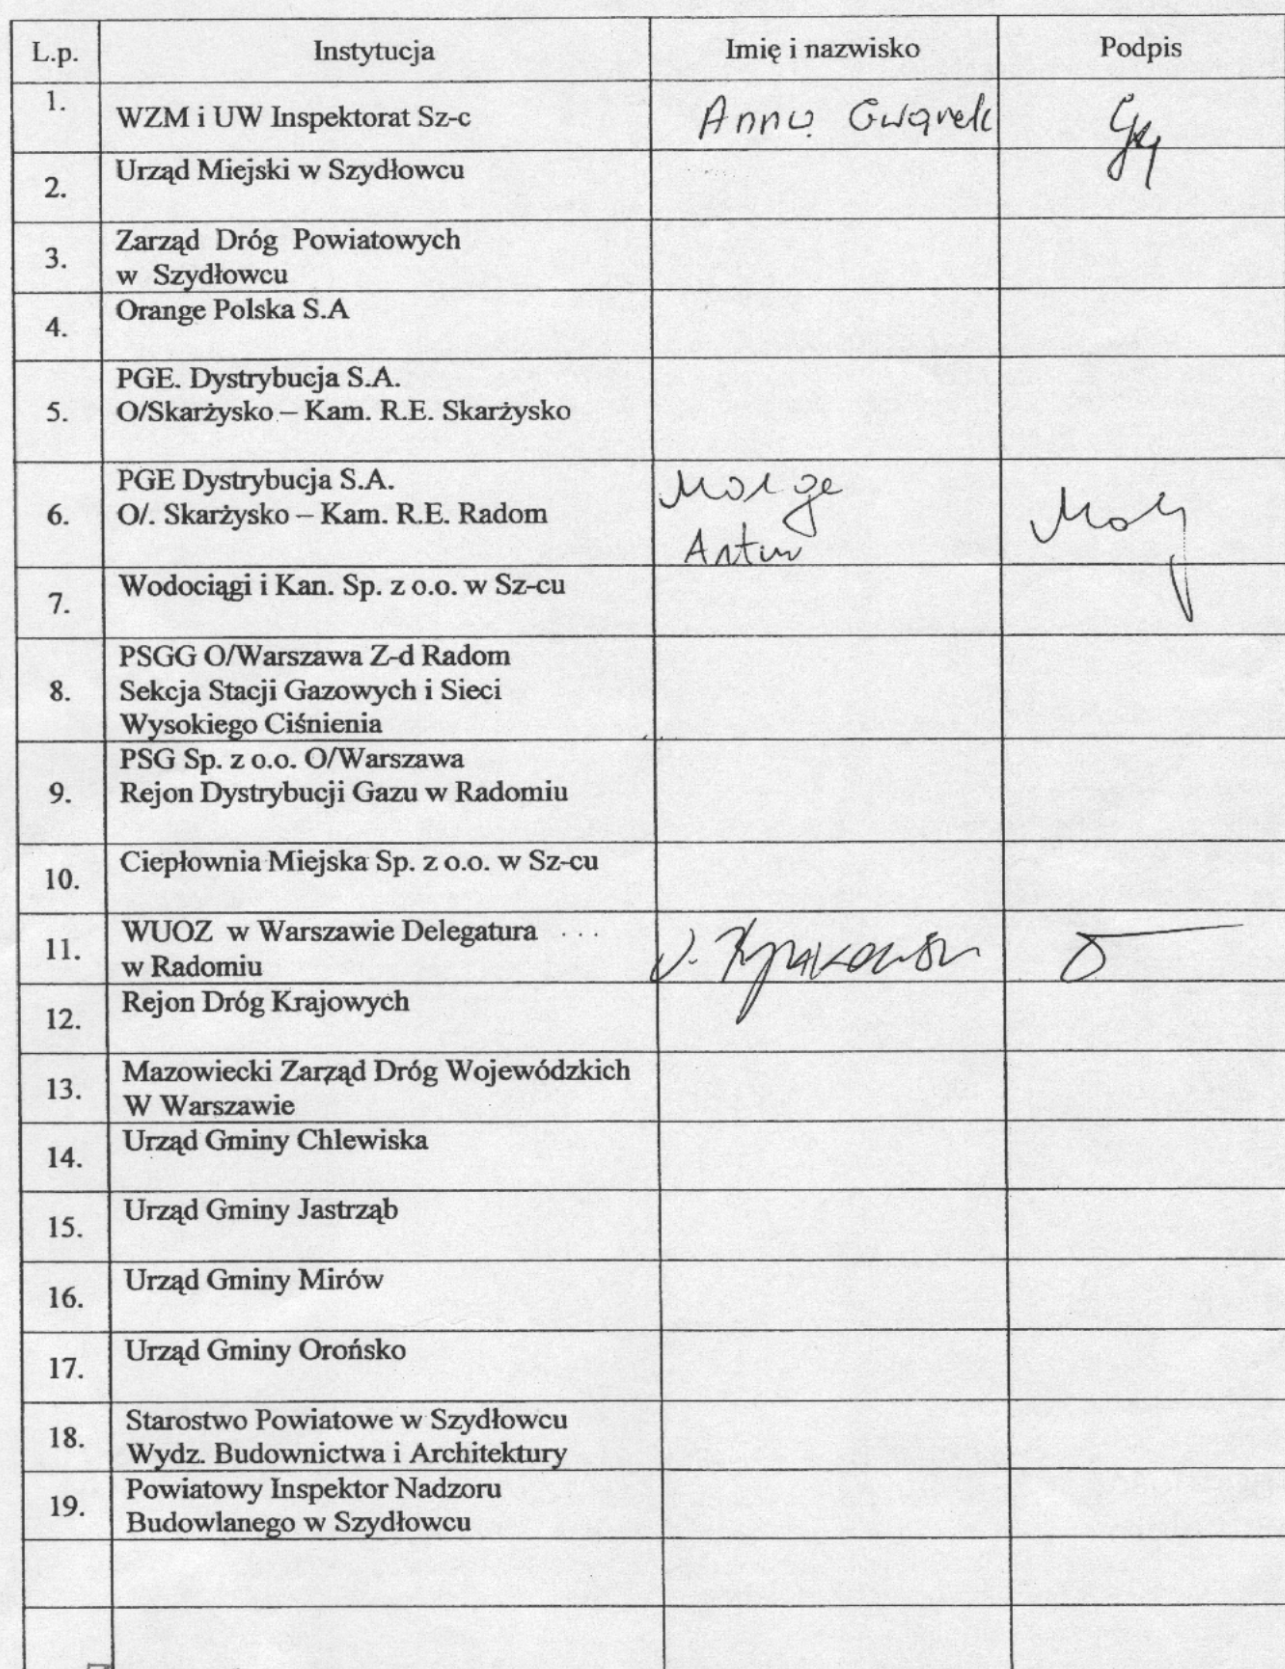 L.p. Instytucja Imię i nazwisko Podpis
1. WZM i UW Inspektorat Sz-c Anna Gwarek
2. Urząd Miejski w Szydłowcu
3. Zarząd Dróg Powiatowych
w Szydłowcu
4. Orange Polska S.A
PGE. Dystrybucja S.A.
5. O/Skarżysko – Kam. R.E. Skarżysko
PGE Dystrybucja S.A.
6. O/. Skarżysko – Kam. R.E. Radom
Artur
7. Wodociągi i Kan. Sp. z o.o. w Sz-cu
PSGG O/Warszawa Z-d Radom
8. Sekcja Stacji Gazowych i Sieci
Wysokiego Ciśnienia
PSG Sp. z o.o. O/Warszawa
9. Rejon Dystrybucji Gazu w Radomiu
10. Ciepłownia Miejska Sp. z o.o. w Sz-cu
11. WUOZ w Warszawie Delegatura
w Radomiu
12. Rejon Dróg Krajowych
13. Mazowiecki Zarząd Dróg Wojewódzkich
W Warszawie
14. Urząd Gminy Chlewiska
15. Urząd Gminy Jastrząb
16. Urząd Gminy Mirów
17. Urząd Gminy Orońsko
18. Starostwo Powiatowe w Szydłowcu
Wydz. Budownictwa i Architektury
19. Powiatowy Inspektor Nadzoru
Budowlanego w Szydłowcu